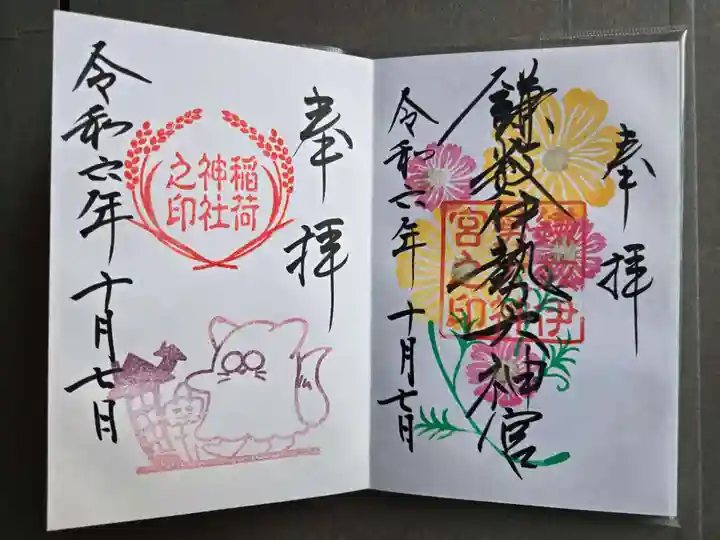 奉拝
鎌数伊勢大神宮
令和六年 十月七日
奉拝
稲荷
神社
之印
令和六年 十月七日